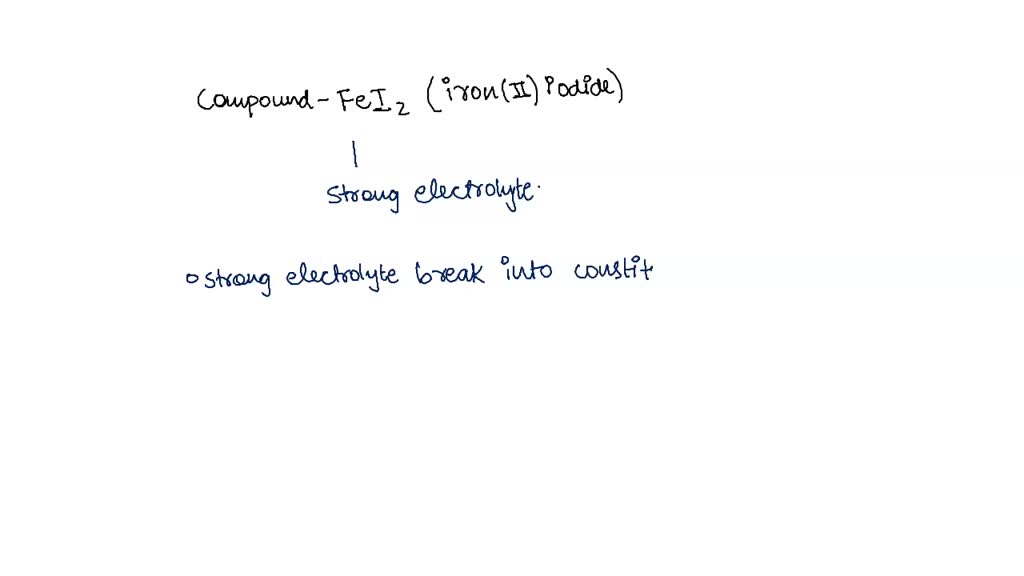 Compound - FeI₂ (iron(II) iodide)
strong electrolyte.
strong electrolyte break into constit